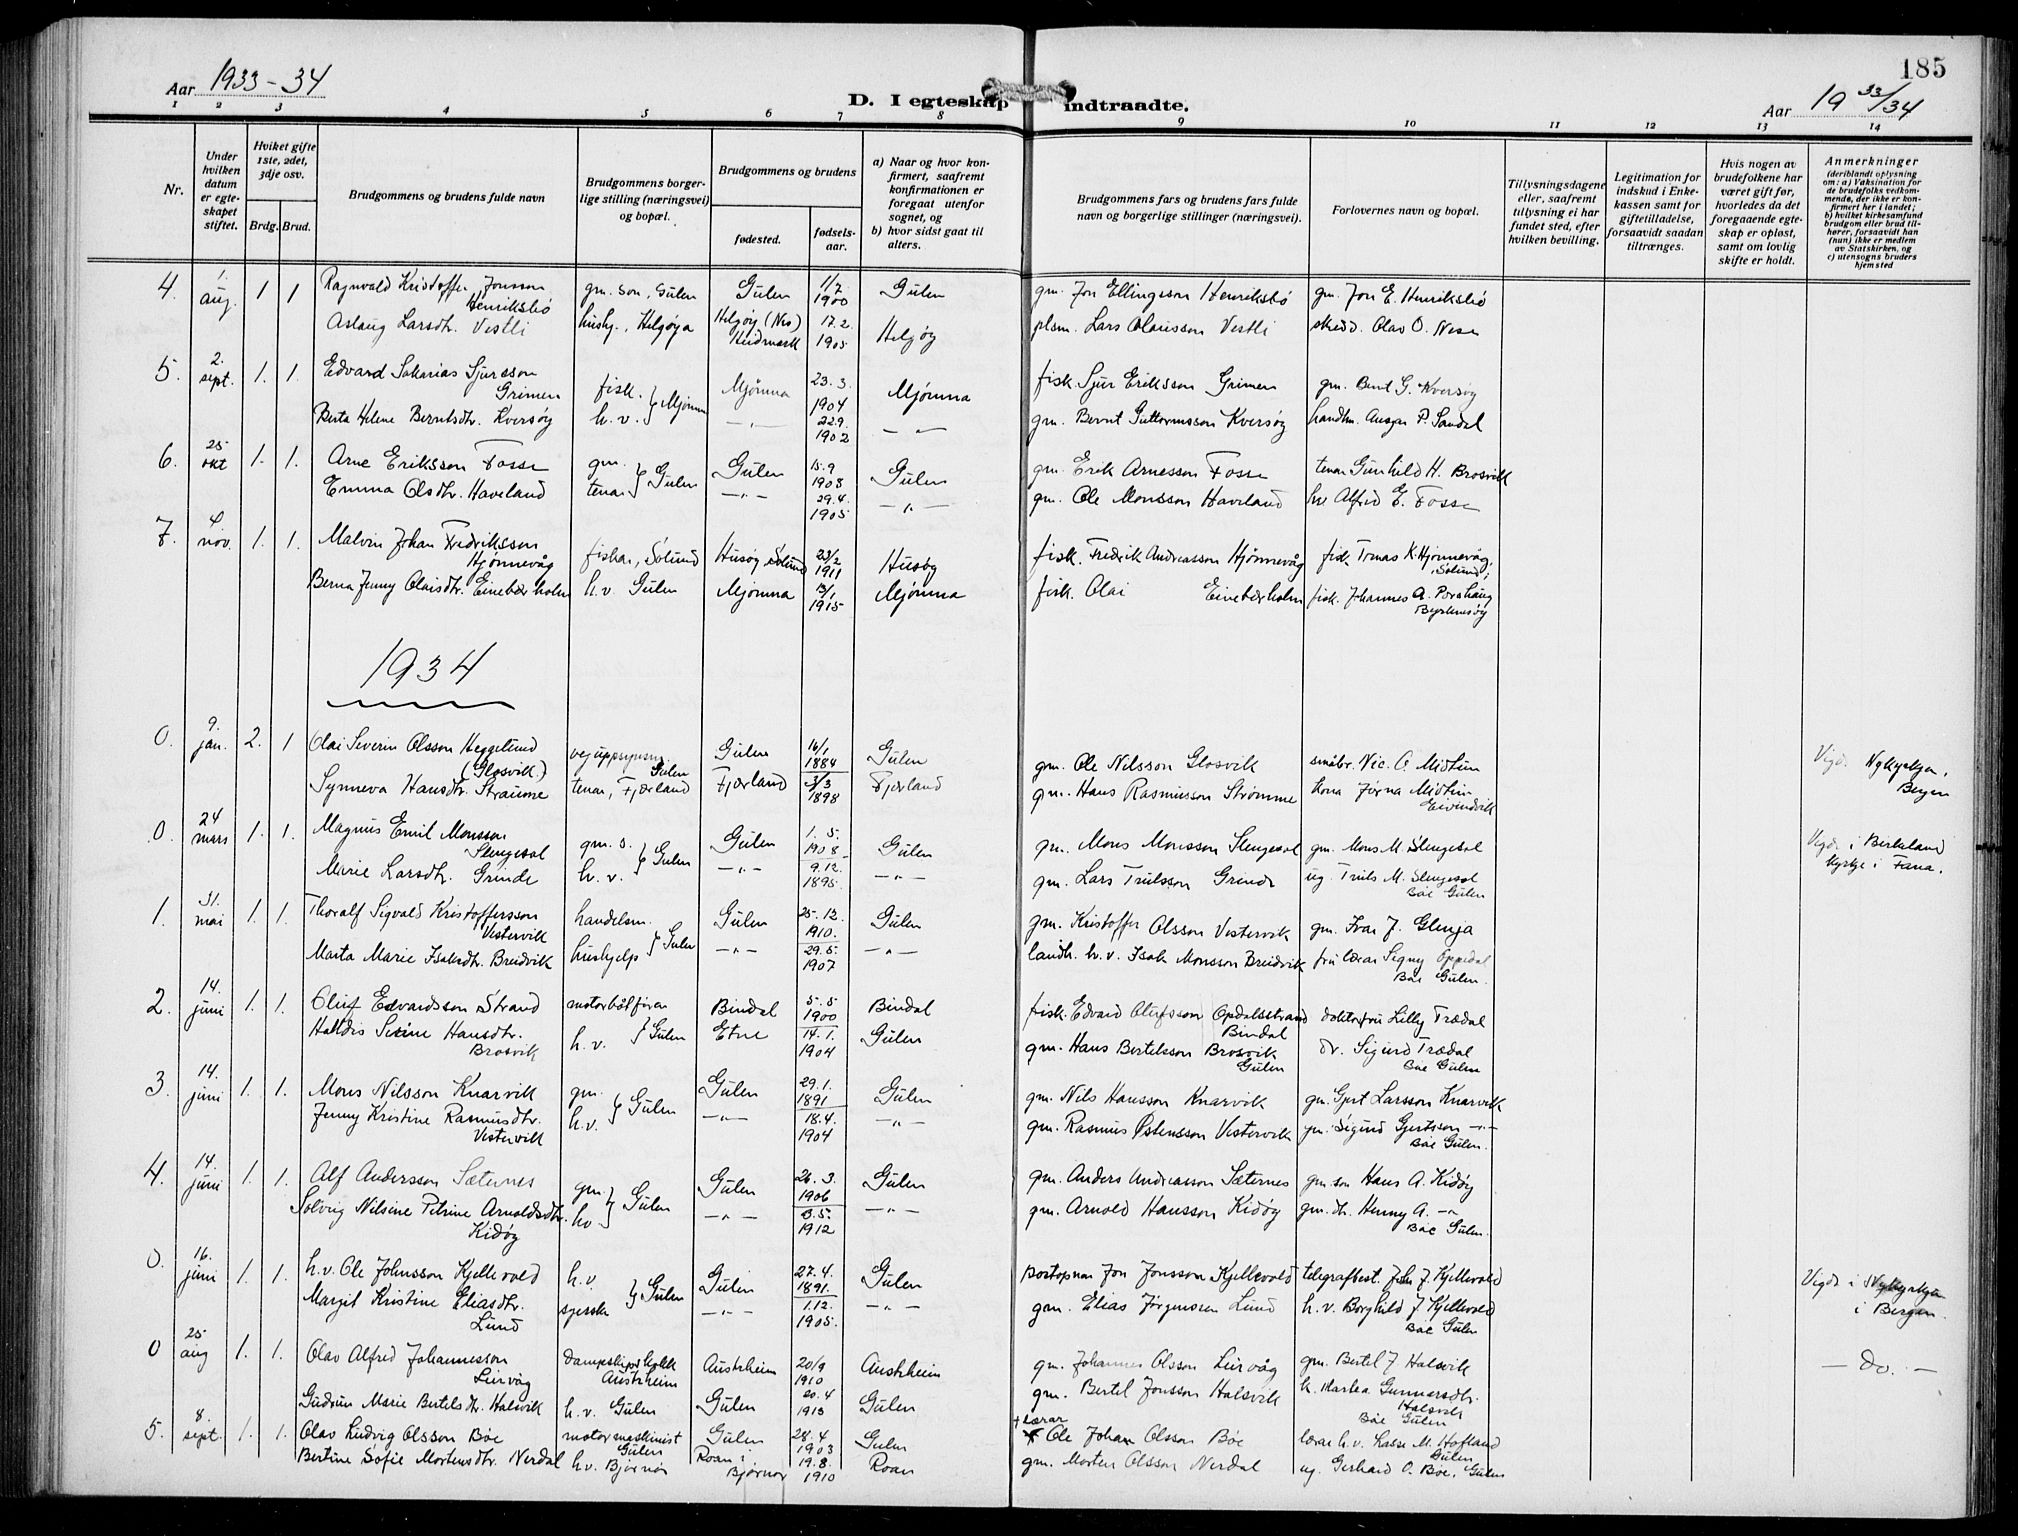 185
Aar 1933-34
D. I egteskap indtraadte.
Aar 19 33/34
1 2 3 4 5 6 7 8 9 10 11 12 13 14
Nr.
Under hvilken datum er egteskapet stiftet.
Hviket gifte 1ste, 2det, 3dje osv.
Brdg. Brud.
Brudgommens og brudens fulde navn
Brudgommens borgerlige stilling (næringsvei) og bopæl.
Brudgommens og brudens
fødested.
fødselsaar.
a) Naar og hvor konfirmert, saafremt konfirmationen er foregaat utenfor sognet, og
b) hvor sidst gaat til alters.
Brudgommens fars og brudens fars fulde navn og borgerlige stillinger (næringsvei).
Forlovernes navn og bopæl.
Tillysningsdagene eller, saafremt tillysning ei har fundet sted, efter hvilken bevilling.
Legitimation for indskud i Enkekassen samt for giftetilladelse, forsaavidt saadan tiltrænges.
Hvis nogen av brudefolkene har været gift før, hvorledes da det foregaaende egteskap er opløst, samt om lovlig skifte er holdt.
Anmerkninger (deriblandt oplysning om: a) Vaksination for de brudefolks vedkommende, der ikke er konfirmert her i landet; b) hvilket kirkesamfund brudgom eller brud tilhører, forsaavidt han (hun) ikke er medlem av Statskirken, og c) utensogns bruders hjemsted
4. 1. aug. 1 1 Ragnvald Kristoffer Jonsson Henriksbø gm. son, Gulen Gulen 1/7 1900 Gulen gm. Jon Ellingsson Henriksbø gm. Jon E. Henriksbø
Aslaug Larsdtr. Vestli hushj., Helgøya Helgøy (Nes) Hedmark 17.2. 1905 Helgøy plsm. Lars Olausson Vestli Olav O. Nese
5. 2. sept. 1. 1. Edvard Sakarias Sjursson Grimen fisk. Mjømna Mjømna 23.3. 1904 Mjømna fisk. Sjur Eriksson Grimen gm. Bernt G. Kversøy
Berta Helene Berntsdtr. Kversøy h.v. —„— 22.9. 1902 —„— gm. Bernt Guttormsson Kversøy handlm. Ansgar P. Sandal
6. 25 okt 1. 1. Arne Eriksson Fosse gm. Gulen Gulen 15.9 1908 Gulen gm. Erik Arnesson Fosse tenar Gunhild H. Brosvik
Emma Olsdtr. Haveland tenar —„— 29.4. 1905 —„— gm. Ole Monsson Haveland Alfred E. Fosse
7. 4 nov. 1. 1. Malvin Johan Fredriksson Hjønnevåg fiskar, Solund Husøy Solund 23/2 1911 Husøy fisk. Fredrik Andreasson Hjønnevåg fisk. Tomas K. Hjønnevåg, Solund;
Berna Jenny Olaisdtr. Einebærholm h.v. Gulen Mjømna 13/1 1915 Mjømna fisk. Olai Einebærholm fisk. Johannes A. Porshaug Byrknesøy
1934
0. 9. jan. 2. 1 Olai Severin Olsson Heggelund (Glosvik) veguppsynsm. Gulen Gulen 16/1 1884 Gulen gm. Ole Nilsson Glosvik småbr. Nic. O. Midtun Vigde Nykyrkja, Bergen
Synneva Hansdtr. Straume tenar, Fjærland Fjærland 3/3 1898 Fjærland gm. Hans Rasmusson Strømme kona Jørna Midtun Eivindvik
0. 24 mars 1. 1. Magnus Emil Monsson Slengesol gm. s. Gulen Gulen 1.5. 1908 Gulen gm. Mons Monsson Slengesol gm. Mons M. Slengesol Vigde i Birkeland kyrkje i Fana.
Marie Larsdtr. Grinde h.v. —„— 9.12. 1895. —„— gm. Lars Trulsson Grinde ug. Truls M. Slengesol Bøe Gulen
1. 31. mai 1. 1. Thoralf Sigvald Kristoffersson Vestervik handelsm. Gulen Gulen 25.12. 1910. Gulen gm. Kristoffer Olsson Vestervik gm. Ivar J. Glenja
Marta Marie Isaksdtr. Breidvik hushjelp —„— 29.5. 1907 —„— landh. h.v. Isak Monsson Breidvik fru lærar Signy Oppedal Bøe Gulen.
2. 14. juni 1. 1. Oluf Edvardsson Strand motorbåtførar Gulen Bindal 5.5 1900 Bindal fisk. Edvard Olufsson Opdalsstrand Bindal doktorfru Lilly Trædal
Halldis Sverine Hansdtr. Brosvik h.v. Etne 14.1. 1904 Gulen gm. Hans Bertelsson Brosvik Gulen dr. Sigurd Trædal Bøe Gulen
3. 14. juni 1. 1. Mons Nilsson Knarvik gm. Gulen Gulen 29.1. 1891 Gulen gm. Nils Hansson Knarvik gm. Gjert Larsson Knarvik
Jenny Kristine Rasmusdtr. Vestervik h.v. —„— 18.4. 1904 —„— gm. Rasmus Østensson Vestervik gm. Sigurd Gjertsson —„— Bøe Gulen.
4. 14. juni 1. 1. Alf Andersson Sæternes gm. Gulen Gulen 26.3. 1906 Gulen gm. Anders Andreasson Sæternes gm. son Hans A. Kidøy
Solveig Nilsine Petrine Arnoldsdtr. Kidøy hv. —„— 13.5. 1912 —„— gm. Arnold Hansson Kidøy gm. dtr. Henny A. —„— Bøe Gulen.
0. 16. juni 1. 1. h.v. Ole Johnsson Kjellevold h.v. Gulen Gulen 27.4. 1891. Gulen Jon Jonsson Kjellevold telegrafbest. John J. Kjellevold Vigde i Nykyrkja i Bergen.
Margit Kristine Eliasdtr. Lund —„— 1.12. 1905. —„— gm. Elias Jørgensen Lund h.v. Borghild J Kjellevold Bøe Gulen
0 25 aug 1. 1. Olav Alfred Johannesson Leirvåg Austrheim Austrheim 20/9 1910 Austrheim gm. Johannes Olsson Leirvåg gm. Bertel J Halsvik — Do. —
Gudrun Marie Bertelsdtr. Halsvik h.v. Gulen Gulen 20.4 1913 Gulen gm. Bertel Jonsson Halsvik k. Marta Gunnarsdtr. Halsvik Bøe Gulen
5. 8. sept. 1. 1. Olav Ludvig Olsson Bøe motormaskinist Gulen Gulen 28.4 1903 Gulen + Lærar Ole Johan Olsson Bøe lærar h.v. Lasse M. Hofland Gulen
Bertine Sofie Mortensdtr. Nerdal h.v. Bjørnør Roan i Bjørnør 19.8. 1910 Roan gm. Morten Olsson Nerdal ug. Gerhard O. Bøe, Gulen